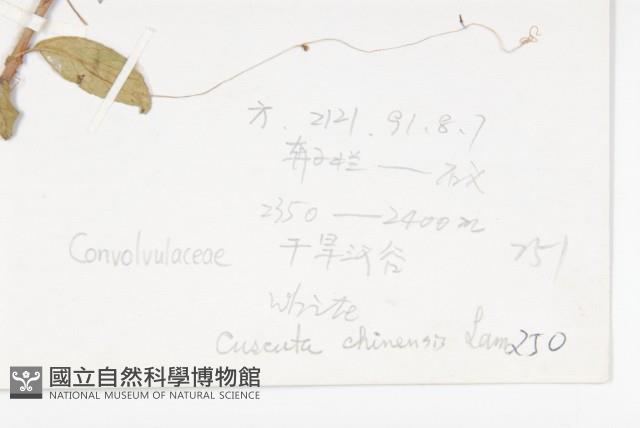 方. 2121. 91.8.7
奔子栏 —
2350 — 2400m
Convolvulaceae 干旱河谷 251
White
Cuscuta chinensis Lam 250
國立自然科學博物館
NATIONAL MUSEUM OF NATURAL SCIENCE